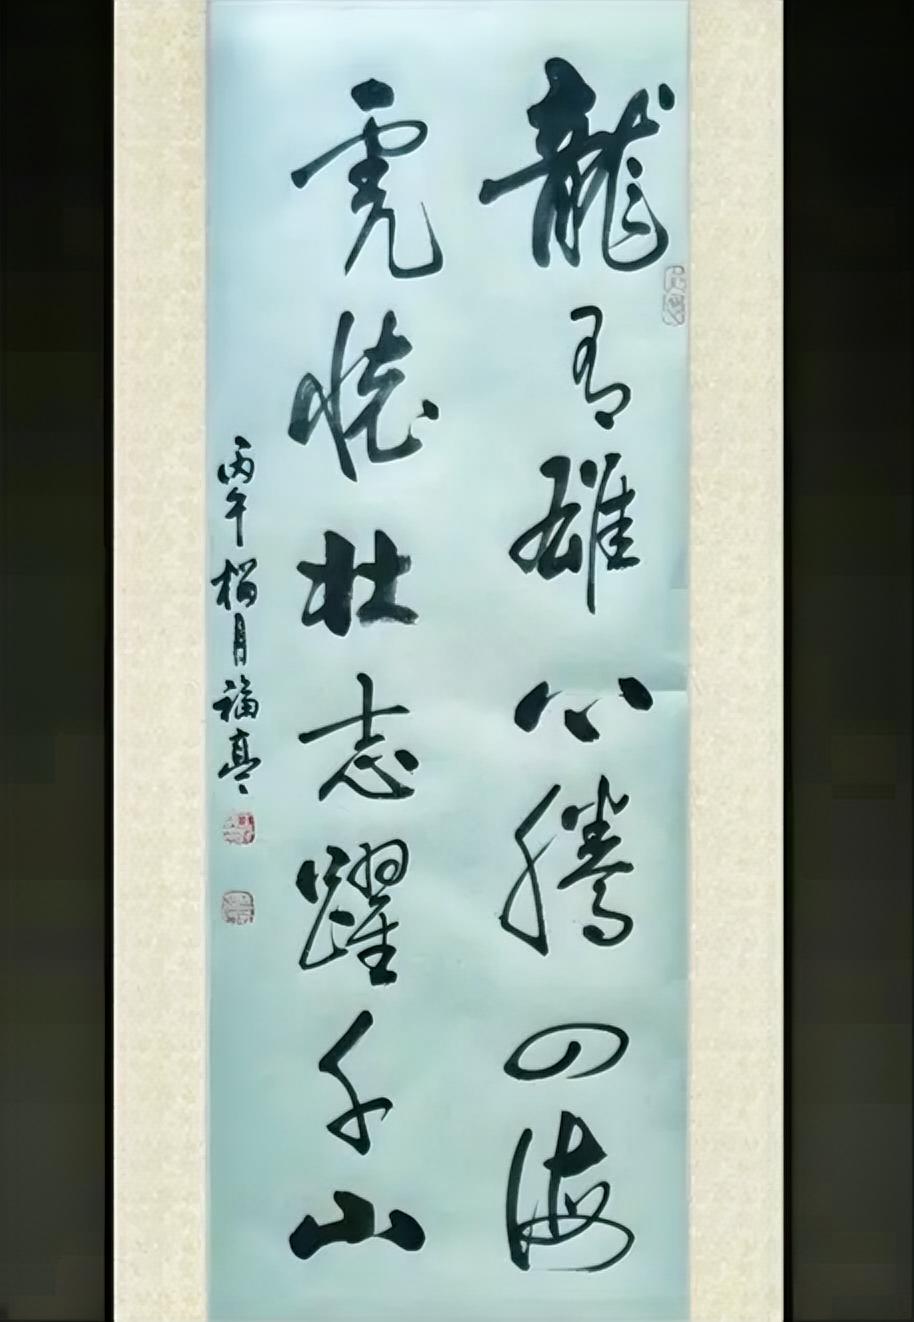 龍有雄心騰四海
虎懷壯志躍千山
丙午榴月福亭